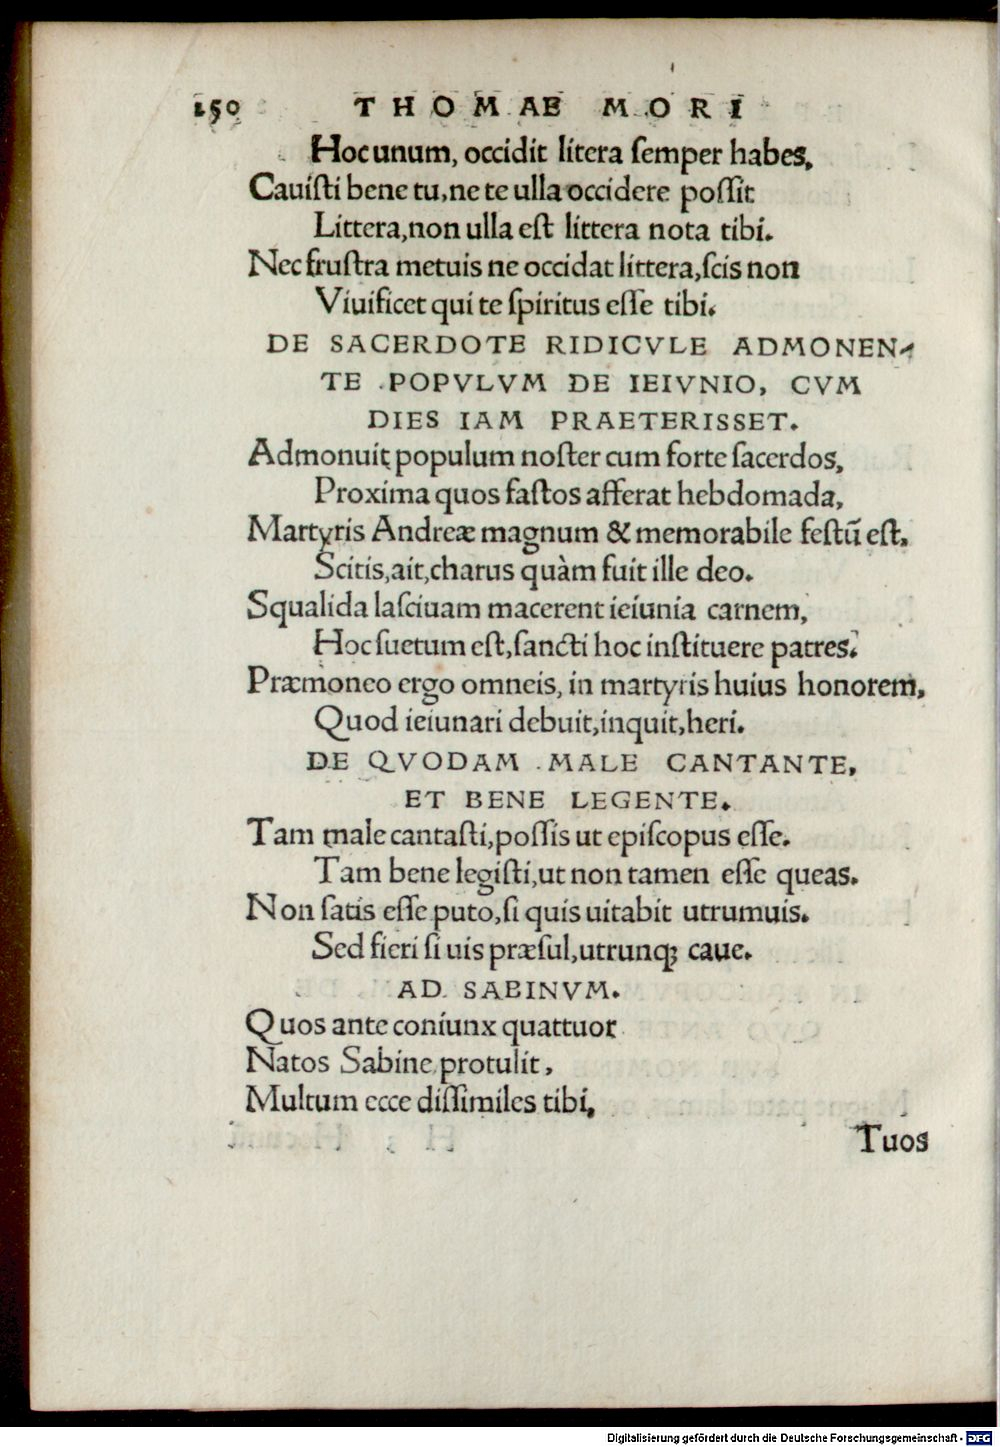 250 THOMAE MORI
Hoc unum, occidit litera ſemper habes.
Cauiſti bene tu, ne te ulla occidere poſſit
Littera, non ulla eſt littera nota tibi.
Nec fruſtra metuis ne occidat littera, ſcis non
Viuificet qui te ſpiritus eſſe tibi.
DE SACERDOTE RIDICVLE ADMONEN-
TE POPVLVM DE IEIVNIO, CVM
DIES IAM PRAETERISSET.
Admonuit populum noſter cum forte ſacerdos,
Proxima quos faſtos afferat hebdomada,
Martyris Andreæ magnum & memorabile feſtū eſt.
Scitis, ait, charus quàm fuit ille deo.
Squalida laſciuam macerent ieiunia carnem,
Hoc ſuetum eſt, ſancti hoc inſtituere patres.
Præmoneo ergo omneis, in martyris huius honorem,
Quod ieiunari debuit, inquit, heri.
DE QVODAM MALE CANTANTE,
ET BENE LEGENTE.
Tam male cantaſti, poſſis ut epiſcopus eſſe.
Tam bene legiſti, ut non tamen eſſe queas.
Non ſatis eſſe puto, ſi quis uitabit utrumuis.
Sed fieri ſi uis præſul, utrunq; caue.
AD SABINVM.
Quos ante coniunx quattuor
Natos Sabine protulit,
Multum ecce diſſimiles tibi,
Tuos
Digitalisierung gefördert durch die Deutsche Forschungsgemeinschaft - DFG